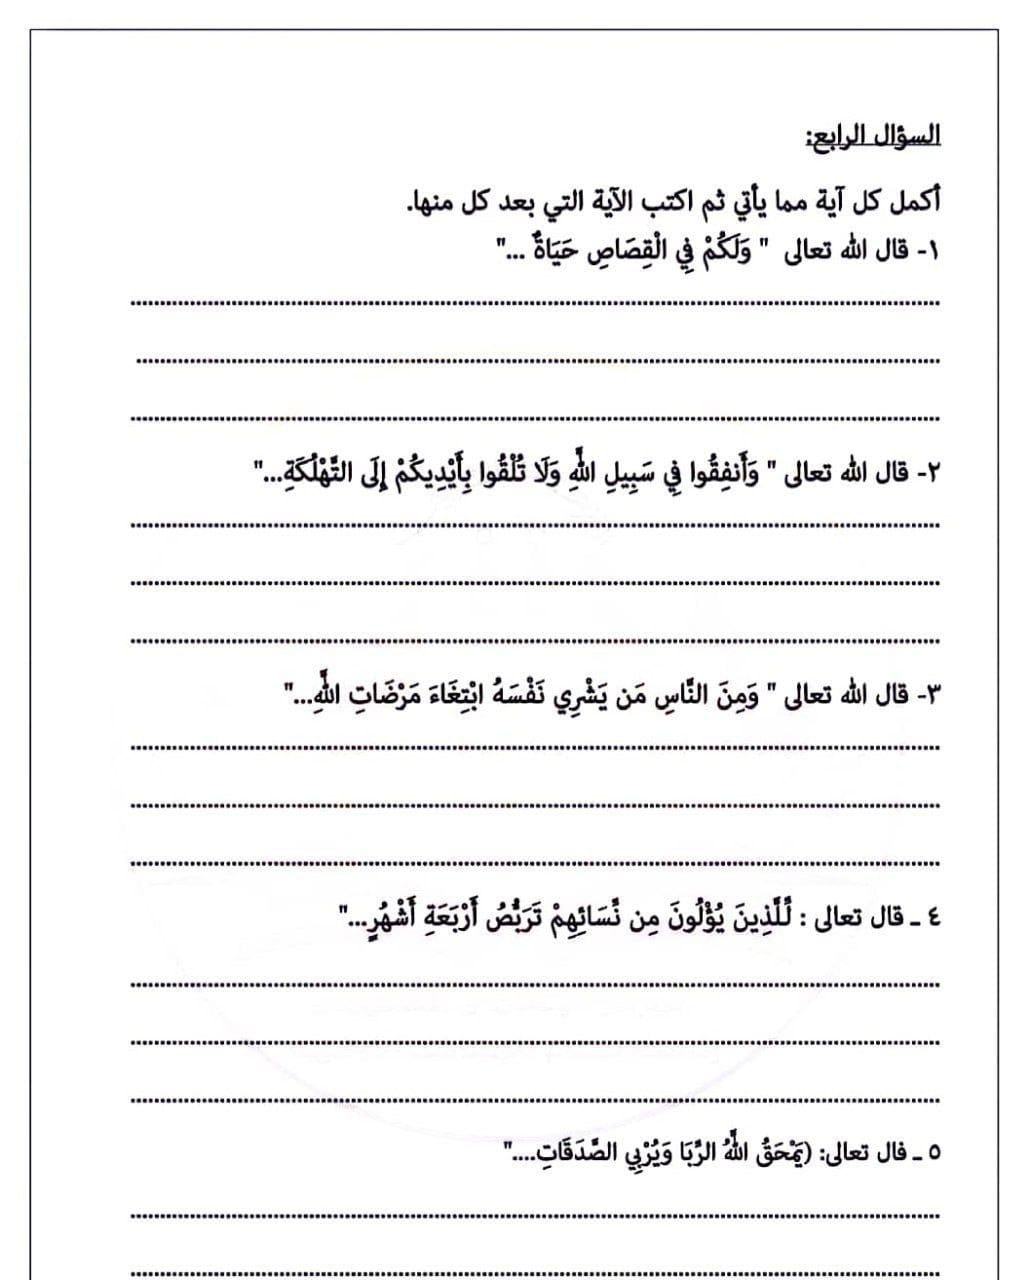 السؤال الرابع:
أكمل كل آية مما يأتي ثم اكتب الآية التي بعد كل منها.
١- قال الله تعالى " وَلَكُمْ فِي الْقِصَاصِ حَيَاةٌ ..."
٢- قال الله تعالى " وَأَنفِقُوا فِي سَبِيلِ اللَّهِ وَلَا تُلْقُوا بِأَيْدِيكُمْ إِلَى التَّهْلُكَةِ..."
٣- قال الله تعالى " وَمِنَ النَّاسِ مَن يَشْرِي نَفْسَهُ ابْتِغَاءَ مَرْضَاتِ اللَّهِ..."
٤ ـ قال تعالى : لِّلَّذِينَ يُؤْلُونَ مِن نِّسَائِهِمْ تَرَبُّصُ أَرْبَعَةِ أَشْهُرٍ..."
٥ ـ فال تعالى: (يَمْحَقُ اللَّهُ الرِّبَا وَيُرْبِي الصَّدَقَاتِ...."